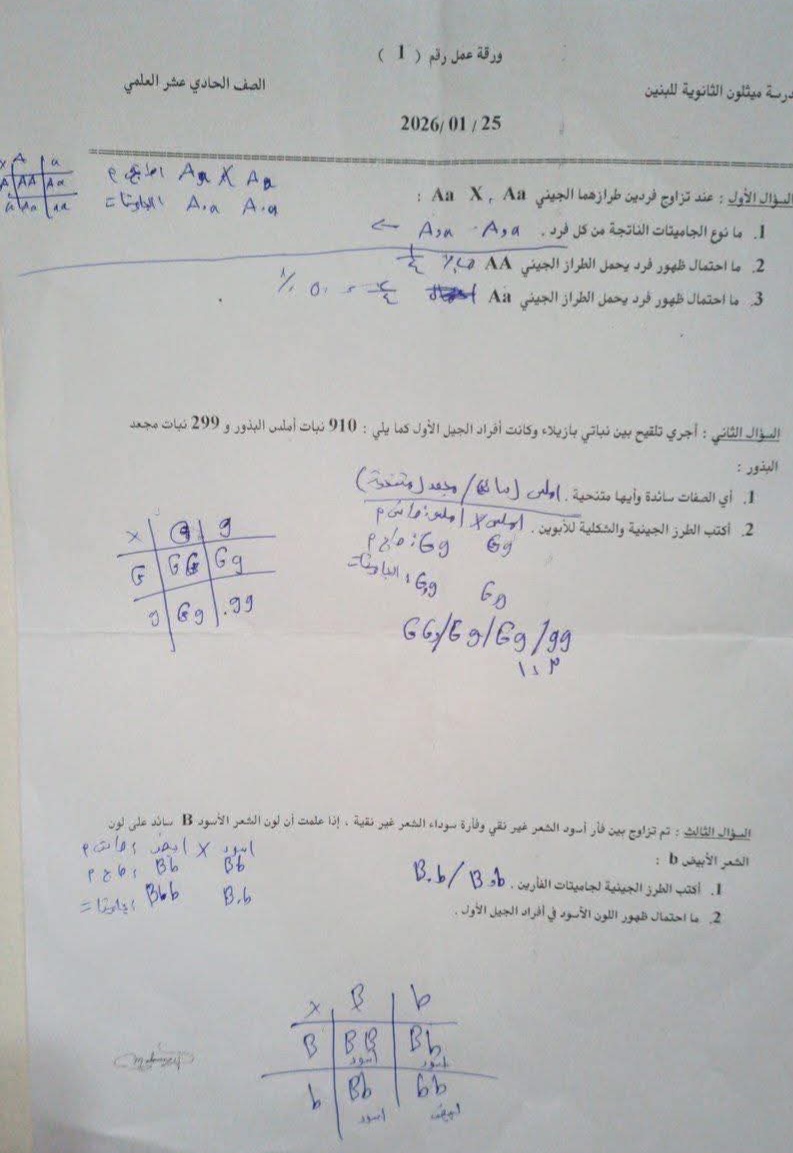 ورقة عمل رقم ( 1 )
درسة ميثلون الثانوية للبنين
الصف الحادي عشر العلمي
2026/01/25
السؤال الأول : عند تزاوج فردين طرازهما الجيني Aa X Aa :
Aa X Aa
A,a A,a
X A a
A AA Aa
a Aa aa
1. ما نوع الجاميتات الناتجة من كل فرد . A,a - A,a ←
2. ما احتمال ظهور فرد يحمل الطراز الجيني AA ١/٤
3. ما احتمال ظهور فرد يحمل الطراز الجيني Aa ٢/٤ = ٥٠ ٪
السؤال الثاني : أجري تلقيح بين نباتي بازيلاء وكانت أفراد الجيل الأول كما يلي : 910 نبات أملس البذور و 299 نبات مجعد
البذور :
1. أي الصفات سائدة وأيها متنحية . املس (سائد) / مجعد (متنحية)
2. أكتب الطرز الجينية والشكلية للأبوين . املس X املس : ط ش م
ط ج م : Gg Gg
الجاميتات : G,g G,g
GG/Gg/Gg/gg
١ : ٣
X G g
G GG Gg
g Gg gg
السؤال الثالث : تم تزاوج بين فأر أسود الشعر غير نقي وفأرة سوداء الشعر غير نقية ، إذا علمت أن لون الشعر الأسود B سائد على لون
الشعر الأبيض b :
ط ش م : ابيض X اسود
ط ج م : Bb Bb
B,b
1. أكتب الطرز الجينية لجاميتات الفأرين . B,b / B,b
2. ما احتمال ظهور اللون الأسود في أفراد الجيل الأول .
X B b
B BB اسود Bb اسود
b Bb اسود bb ابيض